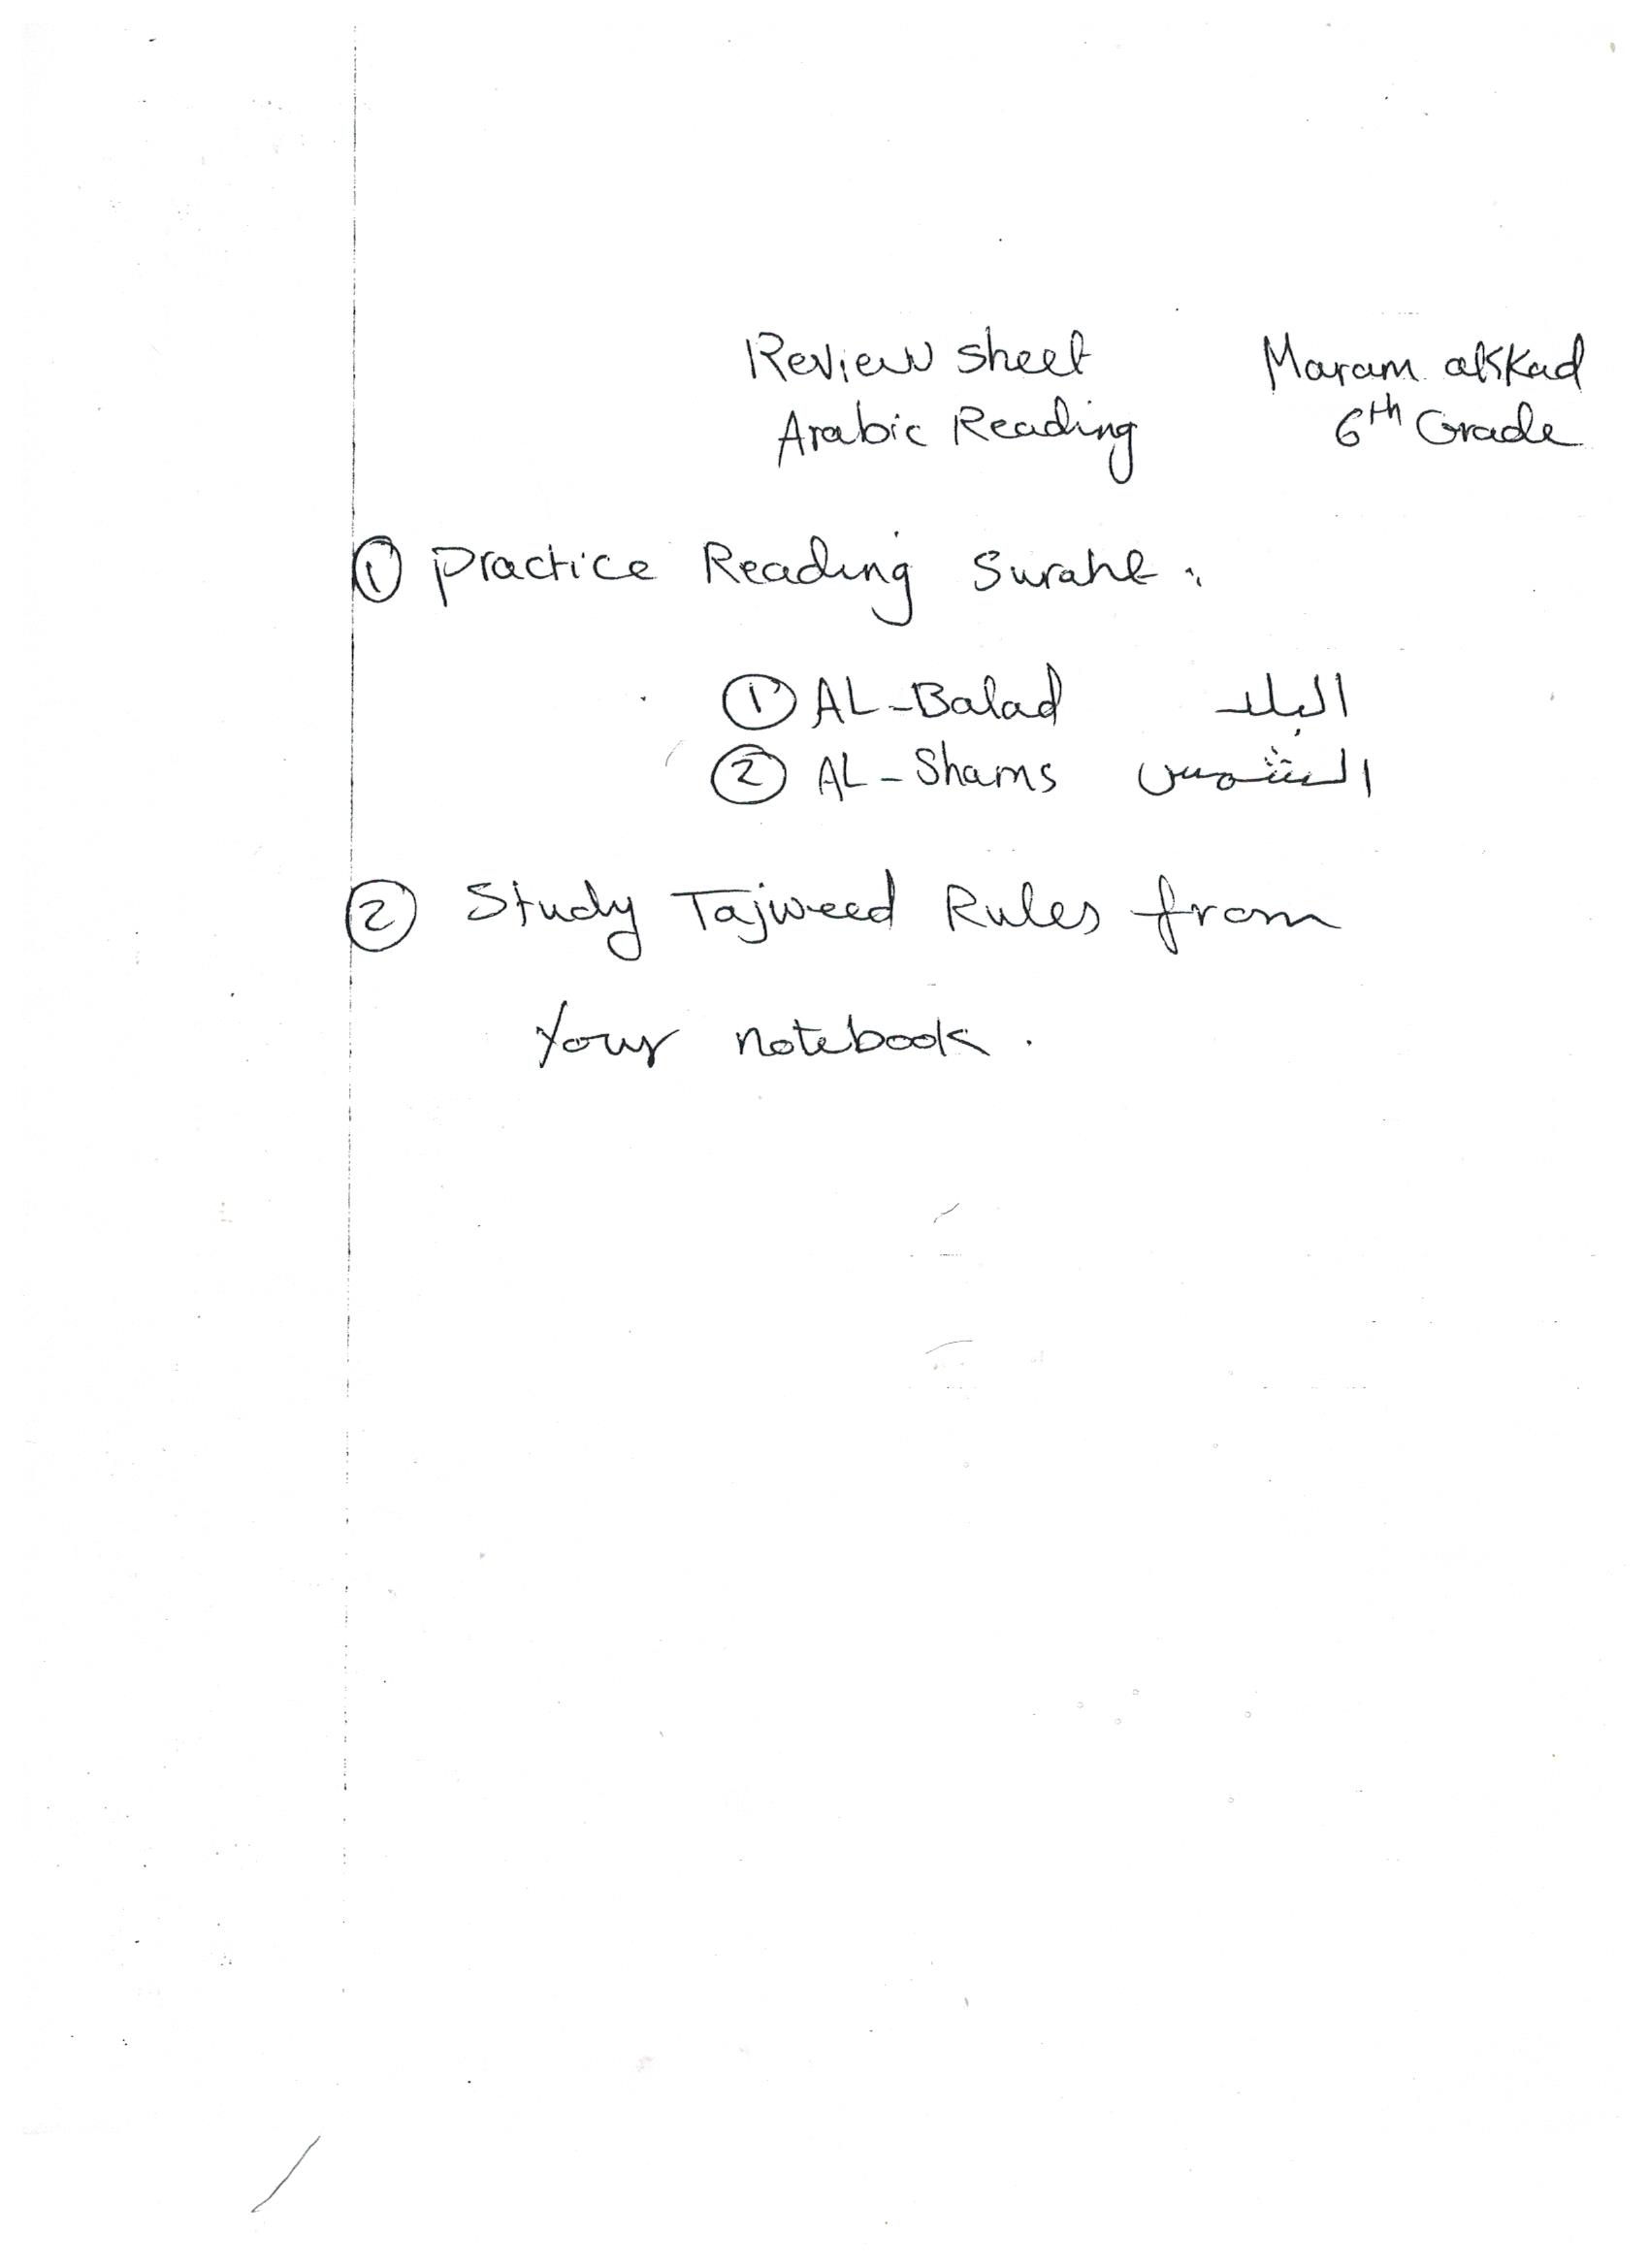 Review sheet Maram alkkad
Arabic Reading 6th Grade
① practice Reading Surahe :
① AL-Balad البلد
② AL-Shams الشمس
② Study Tajweed Rules from
Your notebook .